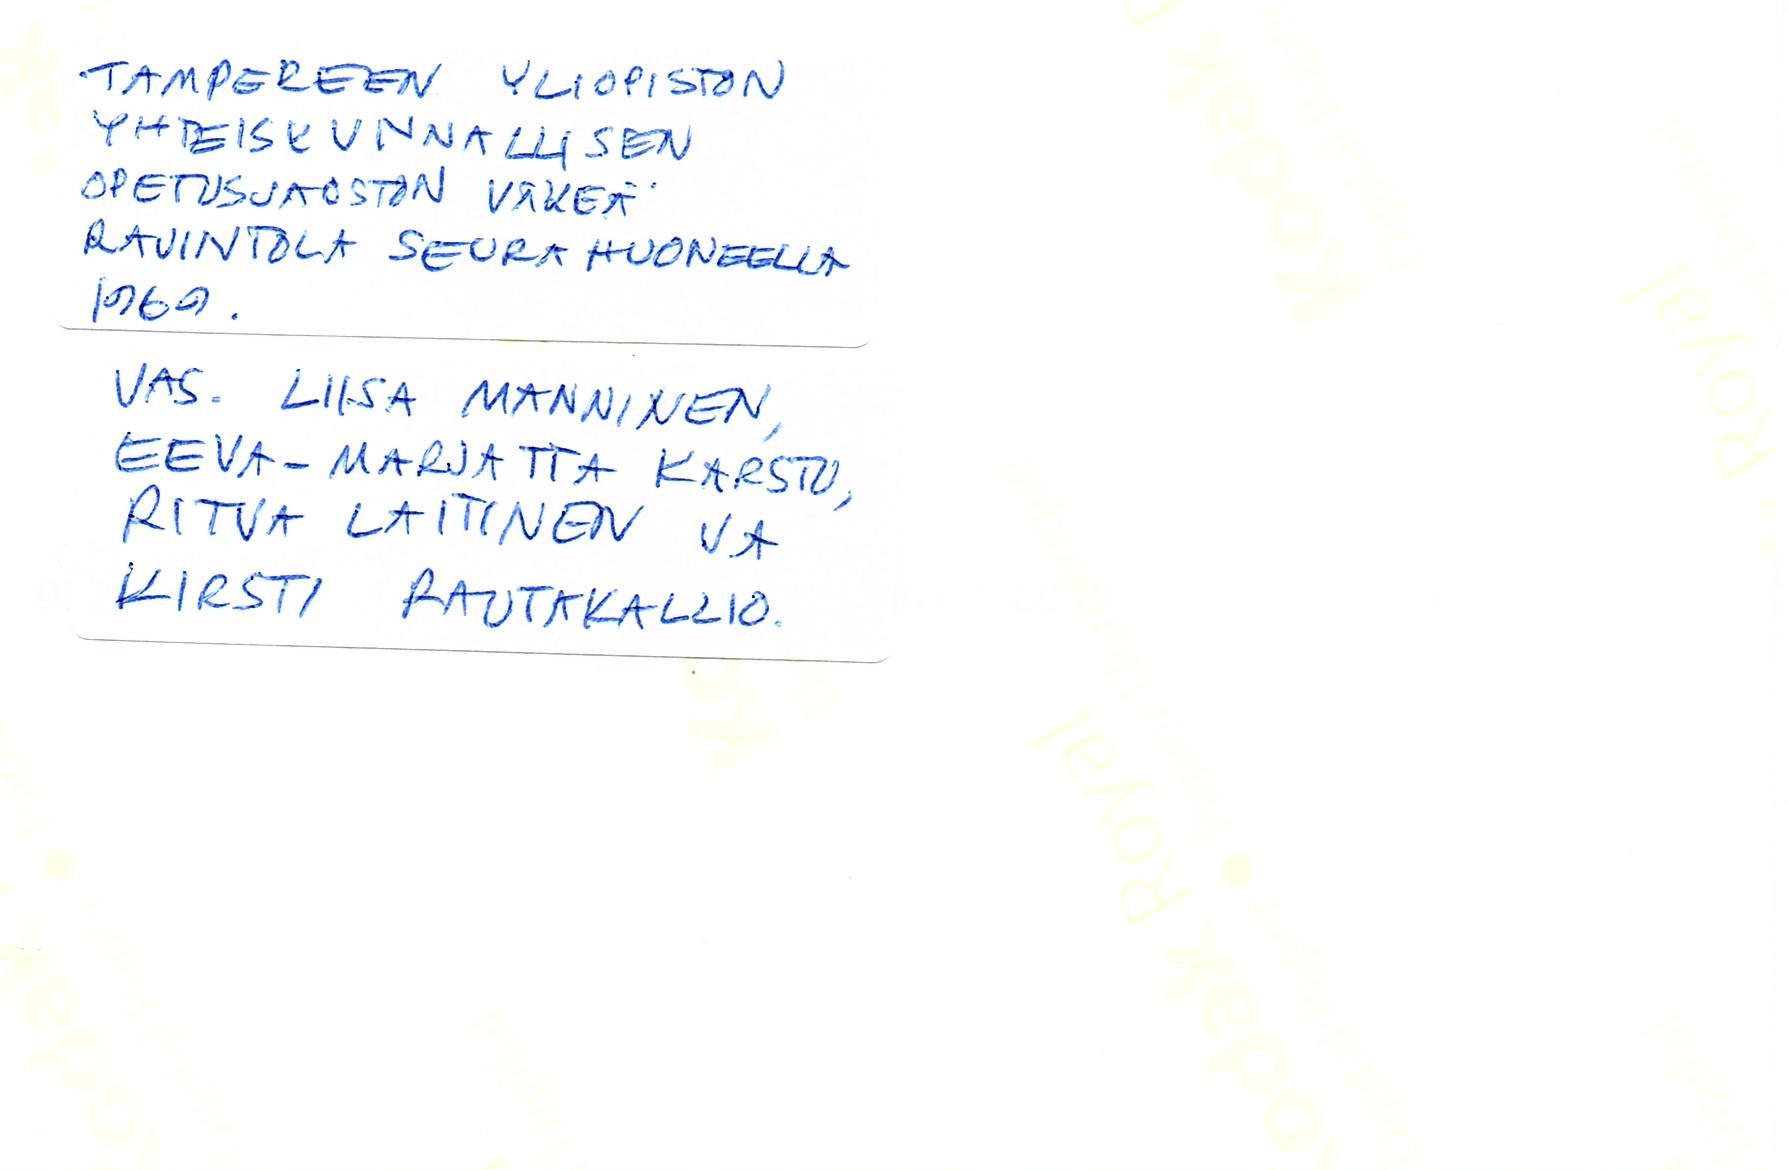 TAMPEREEN YLIOPISTON
YHTEISKUNNALLISEN
OPETUSJAOSTON VÄKEÄ
RAVINTOLA SEURAHUONEELLA
1969.
VAS. LIISA MANNINEN,
EEVA-MARJATTA KARSTU,
RITVA LAITINEN JA
KIRSTI RAUTAKALLIO.
Kodak
Royal
Kodak Royal
Digital Paper
Kodak
Digital